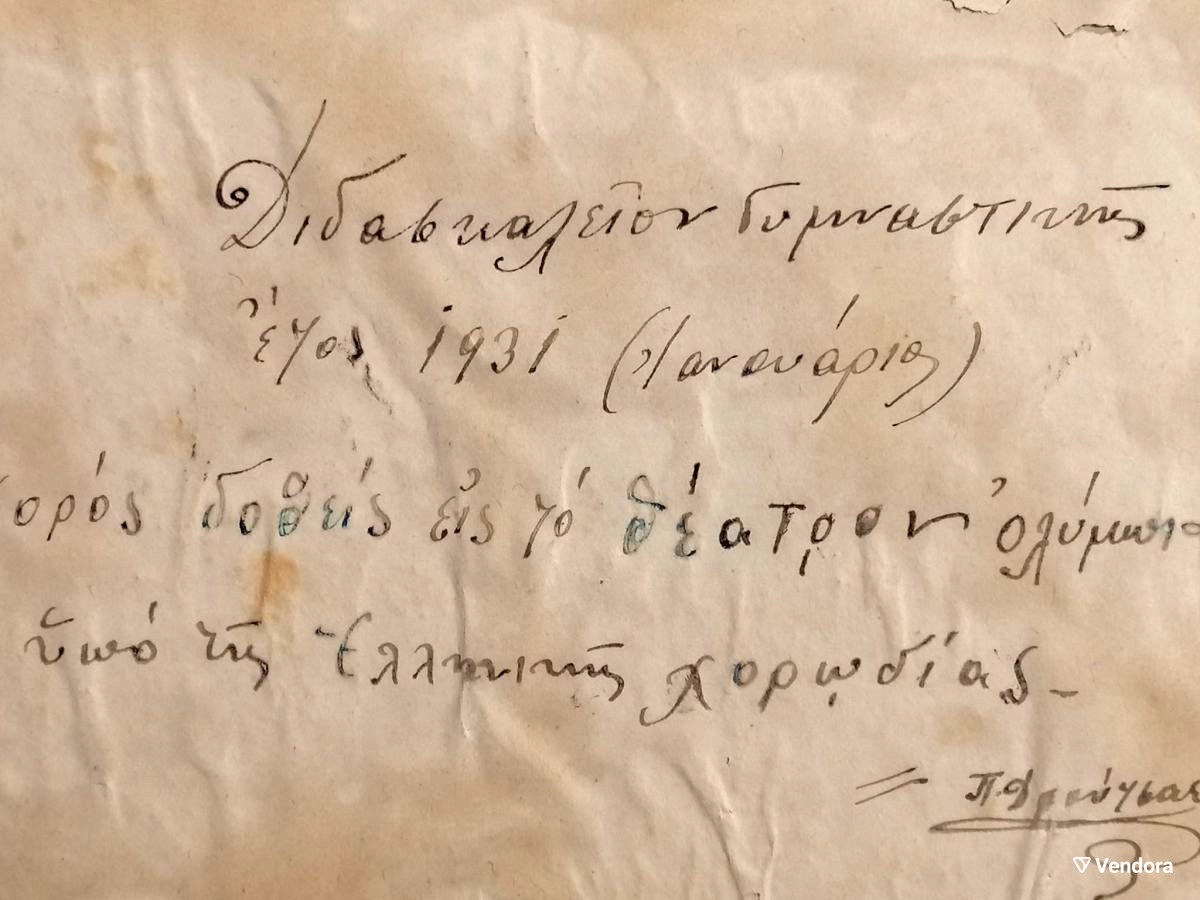 Διδασκαλεῖον Γυμναστικῆς
ἔτος 1931 (Ἰανουάριος)
χορός δοθείς εἰς τό θέατρον Ὀλύμπια
ὑπό τῆς Ἑλληνικῆς χορῳδίας.
Vendora